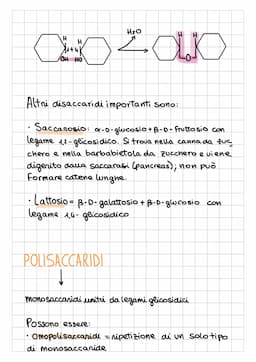 H₂O
H H H H
1 4
OH HO O
Altri disaccaridi importanti sono:
· Saccarosio: α-D-glucosio + β-D-Fruttosio con
legame 1,2-glicosidico. Si trova nella canna da zuc_
chero e nella barbabietola da zucchero e viene
digerito dalla saccarasi (pancreas); non può
Formare catene lunghe.
· Lattosio = β-D-galattosio + β-D-glucosio con
legame 1,4-glicosidico
POLISACCARIDI
monosaccaridi uniti da legami glicosidici
Possono essere:
· Omopolisaccaridi = ripetizione di un solo tipo
di monosaccaride